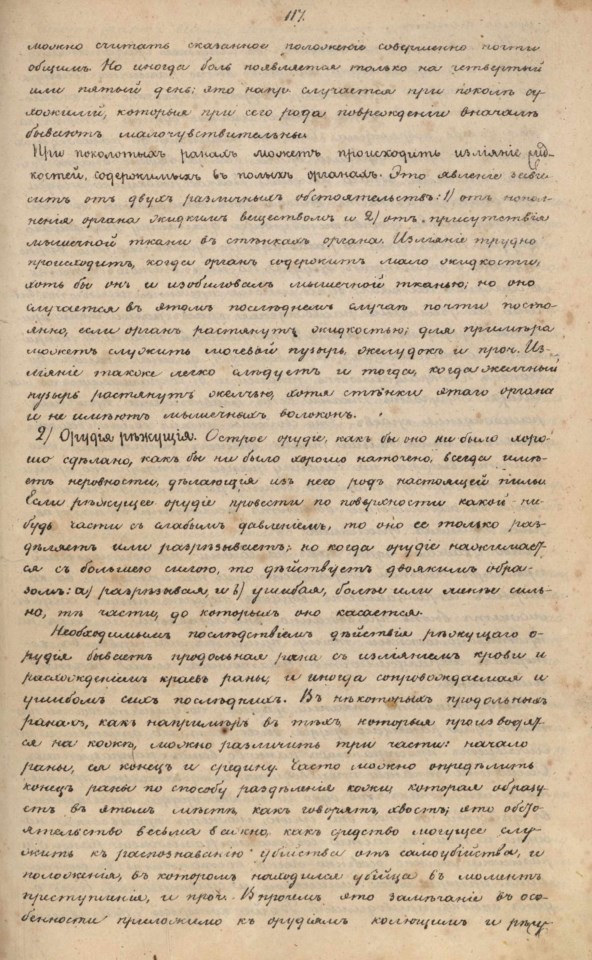 117.
можно считать сказанное положеніе совершенно почти
общимъ. Но иногда боль появляется только на четвертый
или пятый день: это напр. случается при поколѣ су-
хожилій, которыя при сего рода поврежденіи вначалѣ
бываютъ малочувствительны.
При поколотыхъ ранахъ можетъ происходить изліяніе жид-
костей, содержимыхъ въ полыхъ органахъ. Это явленіе зави-
ситъ отъ двухъ различныхъ обстоятельствъ: 1) отъ напол-
ненія органа жидкимъ веществомъ и 2) отъ присутствія
мышечной ткани въ стѣнкахъ органа. Изліяніе трудно
происходитъ, когда органъ содержитъ мало жидкости,
хоть бы онъ и изобиловалъ мышечной тканью; но оно
случается въ этомъ послѣднемъ случаѣ почти посто-
янно, если органъ растянутъ жидкостью; для примѣра
можетъ служить мочевой пузырь, желудокъ и проч. Из-
ліяніе также легко слѣдуетъ и тогда, когда желчный
пузырь растянутъ желчью, хотя стѣнки этаго органа
и не имѣютъ мышечныхъ волоконъ.
2) Орудія рѣжущія. Острое орудіе, какъ бы оно ни было хоро-
шо сдѣлано, какъ бы ни было хорошо наточено, всегда имѣ-
етъ неровности, дѣлающія изъ него родъ настоящей пилы.
Если рѣжущее орудіе провести по поверхности какой-ни-
будь части съ слабымъ давленіемъ, то оно ее только раз-
дѣляетъ или разрѣзываетъ; но когда орудіе нажимает-
ся съ большею силою, то дѣйствуетъ двоякимъ обра-
зомъ: а) разрѣзывая, и b) ушибая, болѣе или менѣе силь-
но, тѣ части, до которыхъ оно касается.
Необходимымъ послѣдствіемъ дѣйствія рѣжущаго о-
рудія бываетъ продольная рана съ изліяніемъ крови и
расхожденіемъ краевъ раны, и иногда сопровождаемая и
ушибомъ сихъ послѣднихъ. Въ нѣкоторыхъ продольныхъ
ранахъ, какъ напримѣръ въ тѣхъ, которыя производят-
ся на кожѣ, можно различить три части: начало
раны, ея конецъ и средину. Часто можно опредѣлить
конецъ раны по способу раздѣленія кожи которая образу-
етъ въ этомъ мѣстѣ, какъ говорятъ, хвостъ; это обсто-
ятельство весьма важно какъ средство могущее слу-
жить къ распознаванію убійства отъ самоубійства, и
положенія, въ которомъ находился убійца въ моментъ
преступленія, и проч. Впрочемъ это замѣчаніе въ осо-
бенности приложимо къ орудіямъ колющимъ и рѣжу-